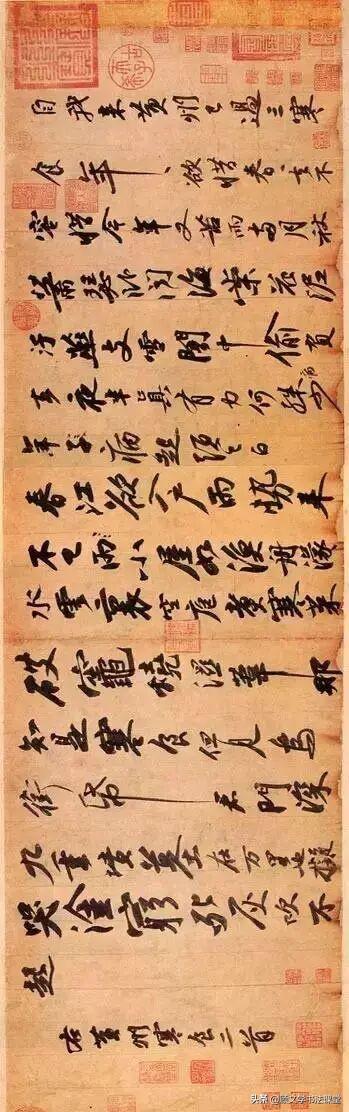 自我來黃州已過三寒
食年〻欲惜春〻去不
容惜今年又苦雨兩月秋
蕭瑟卧聞海棠花泥
汙燕支雪闇中偷負
去夜半真有力何殊病少
年子病起頭已白
春江欲入戶雨勢來
不已雨小屋如漁舟濛〻
水雲裏空庖煮寒菜
破竈燒濕葦那
知是寒食但見烏
銜帋君門深
九重墳墓在万里也擬
哭塗窮死灰吹不
起
右黃州寒食二首
头条 @顾文学书法课堂